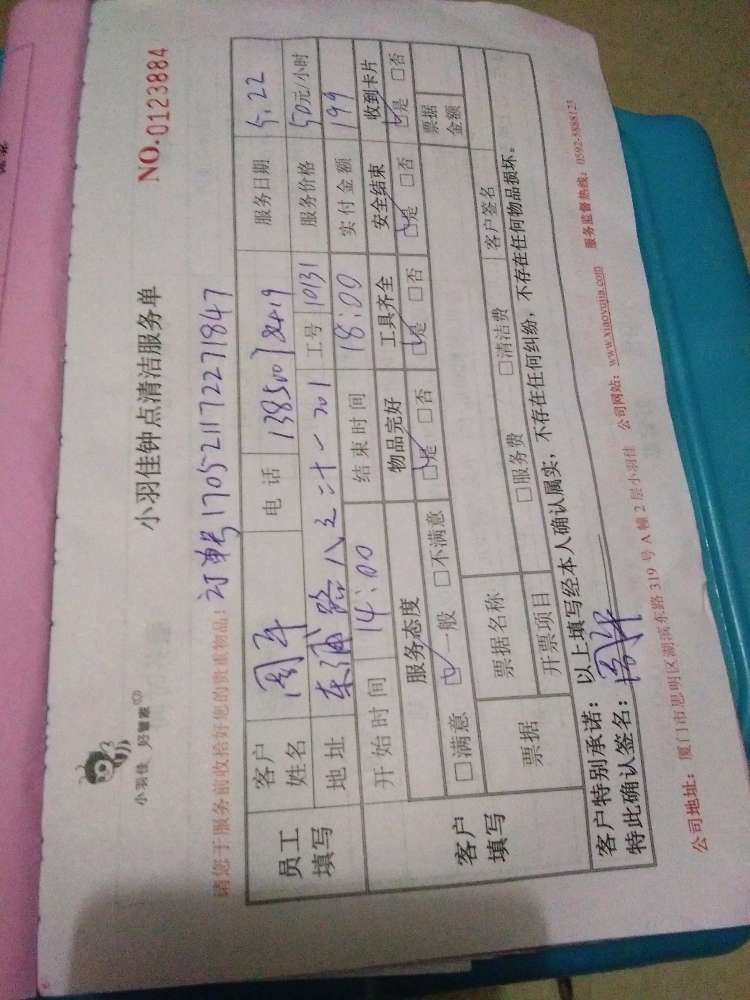 小羽佳 好管家
小羽佳钟点清洁服务单
NO.0123884
请您于服务前收拾好您的贵重物品! 订单号170521172271847
员工填写
客户姓名 周军 电话 服务日期 5.22
地址 东浦路八之二十一701 工号 10131 服务价格 50元/小时
开始时间 14:00 结束时间 18:00 实付金额 199
客户填写
服务态度 物品完好 工具齐全 安全结束 收到卡片
□满意 ☑一般 □不满意 ☑是 □否 ☑是 □否 ☑是 □否 ☑是 □否
票据 票据名称 票据金额
开票项目 □服务费 □清洁费 客户签名
客户特别承诺: 以上填写经本人确认属实,不存在任何纠纷,不存在任何物品损坏。
特此确认签名:
公司地址: 厦门市思明区湖滨东路319号A幢2层小羽佳 公司网站: www.xiaoyujia.com 服务监督热线: 0592-5888123